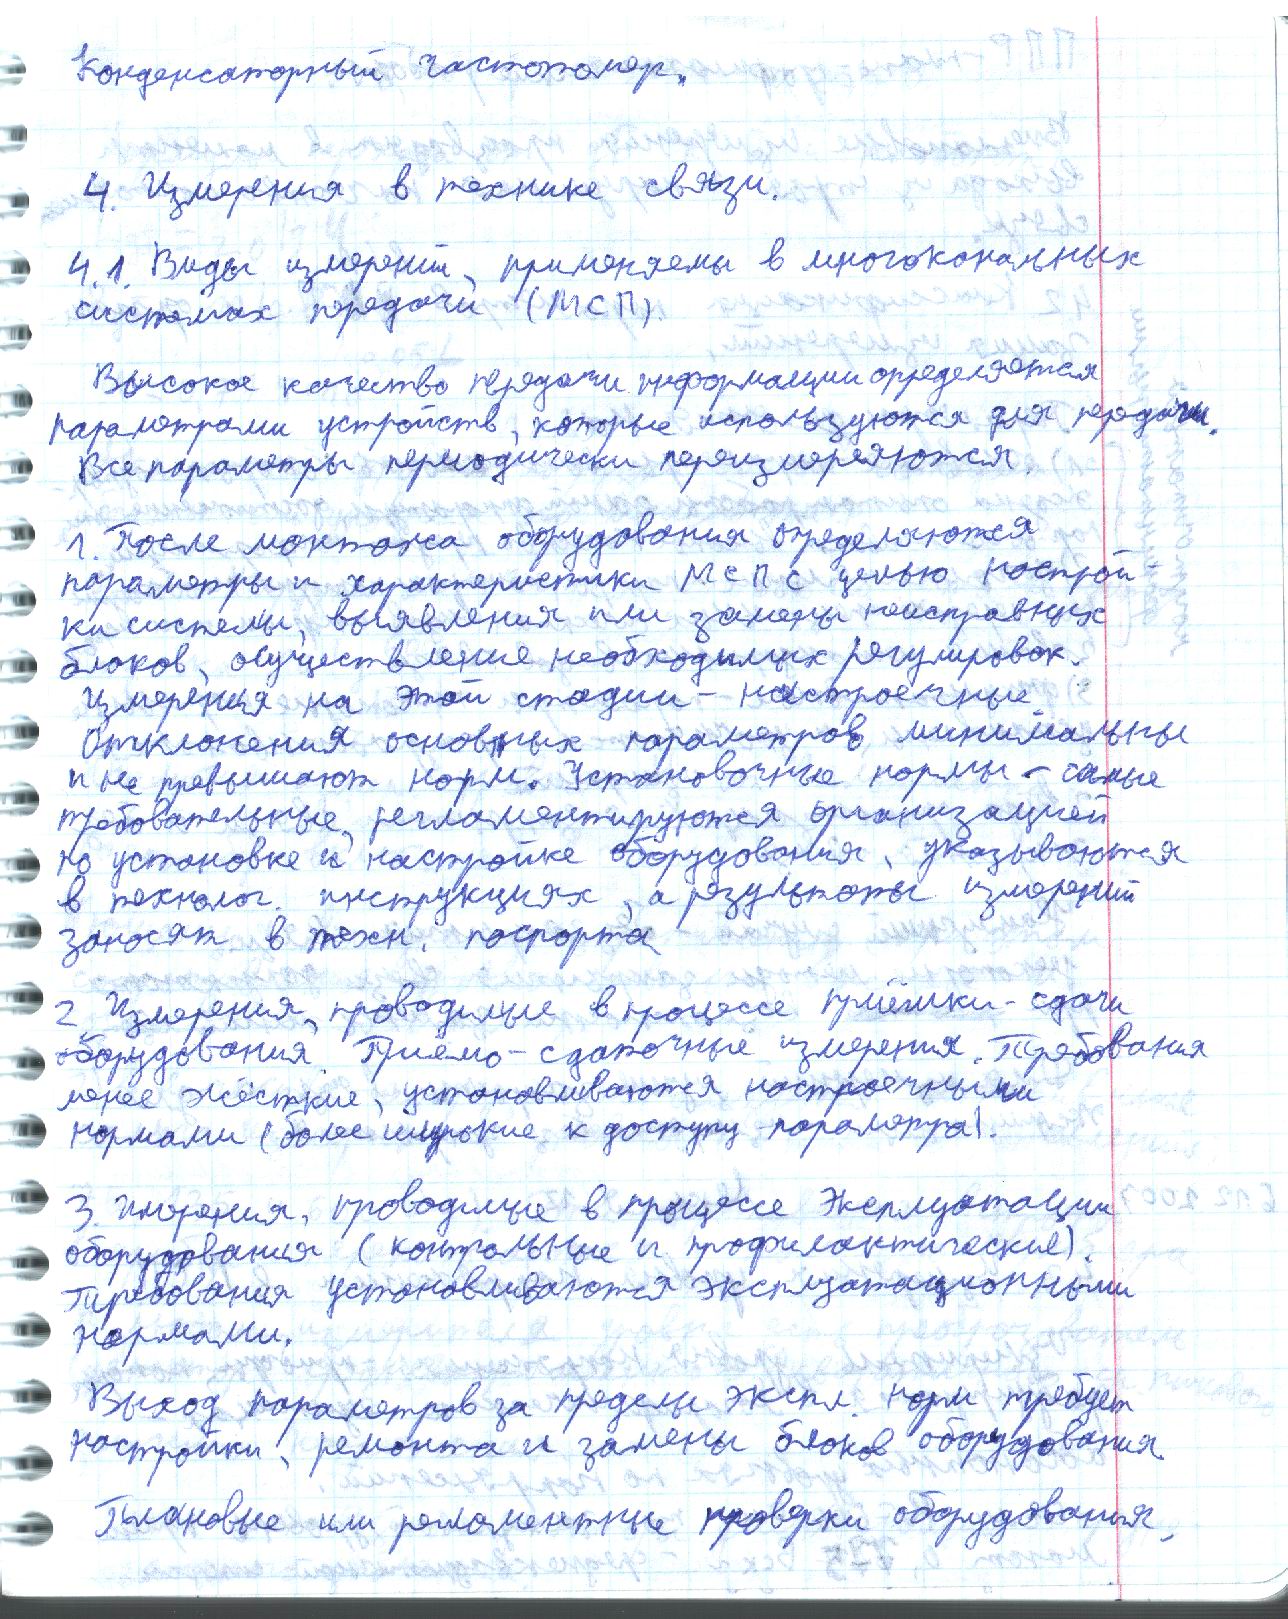 Конденсаторный частотомер.
4. Измерения в технике связи.
4.1. Виды измерений, применяемы в многоканальных
системах передачи (МСП).
Высокое качество передачи информации определяется
параметрами устройств, которые используются для передачи.
Все параметры периодически переизмеряются.
1. После монтажа оборудования определяются
параметры и характеристики МСП с целью настрой-
ки системы, выявления или замены неисправных
блоков, осуществление необходимых регулировок.
Измерения на этой стадии - настроечные
Отклонения основных параметров минимальны
и не превышают норм. Установочные нормы - самые
требовательные, регламентируются организацией
по установке и настройке оборудования, указываются
в технолог. инструкциях, а результаты измерений
заносят в техн. паспорта
2 Измерения, проводимые в процессе приёмки-сдачи
оборудования. Приёмо-сдаточные измерения. Требования
менее жёсткие, устанавливаются настроечными
нормами (более широкие к доступу параметра).
3. Измерения, проводимые в процессе эксплуатации
оборудования (контрольные и профилактические).
Требования устанавливаются эксплуатационными
нормами.
Выход параметров за пределы экспл. норм требует
настройки, ремонта и замены блоков оборудования.
Плановые или регламентные проверки оборудования.